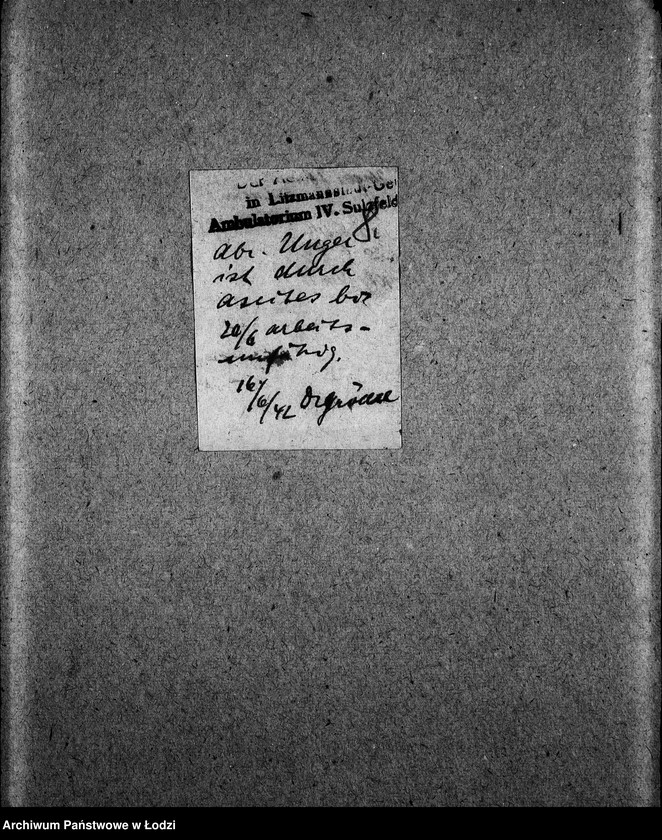 in Litzmannstadt-Ge
Ambulatorium IV. Sulzfeld
Abr. Unger
ist durch
ascites bis
20/6 arbeits-
unfähig.
16/6/42 Dr
Archiwum Państwowe w Łodzi